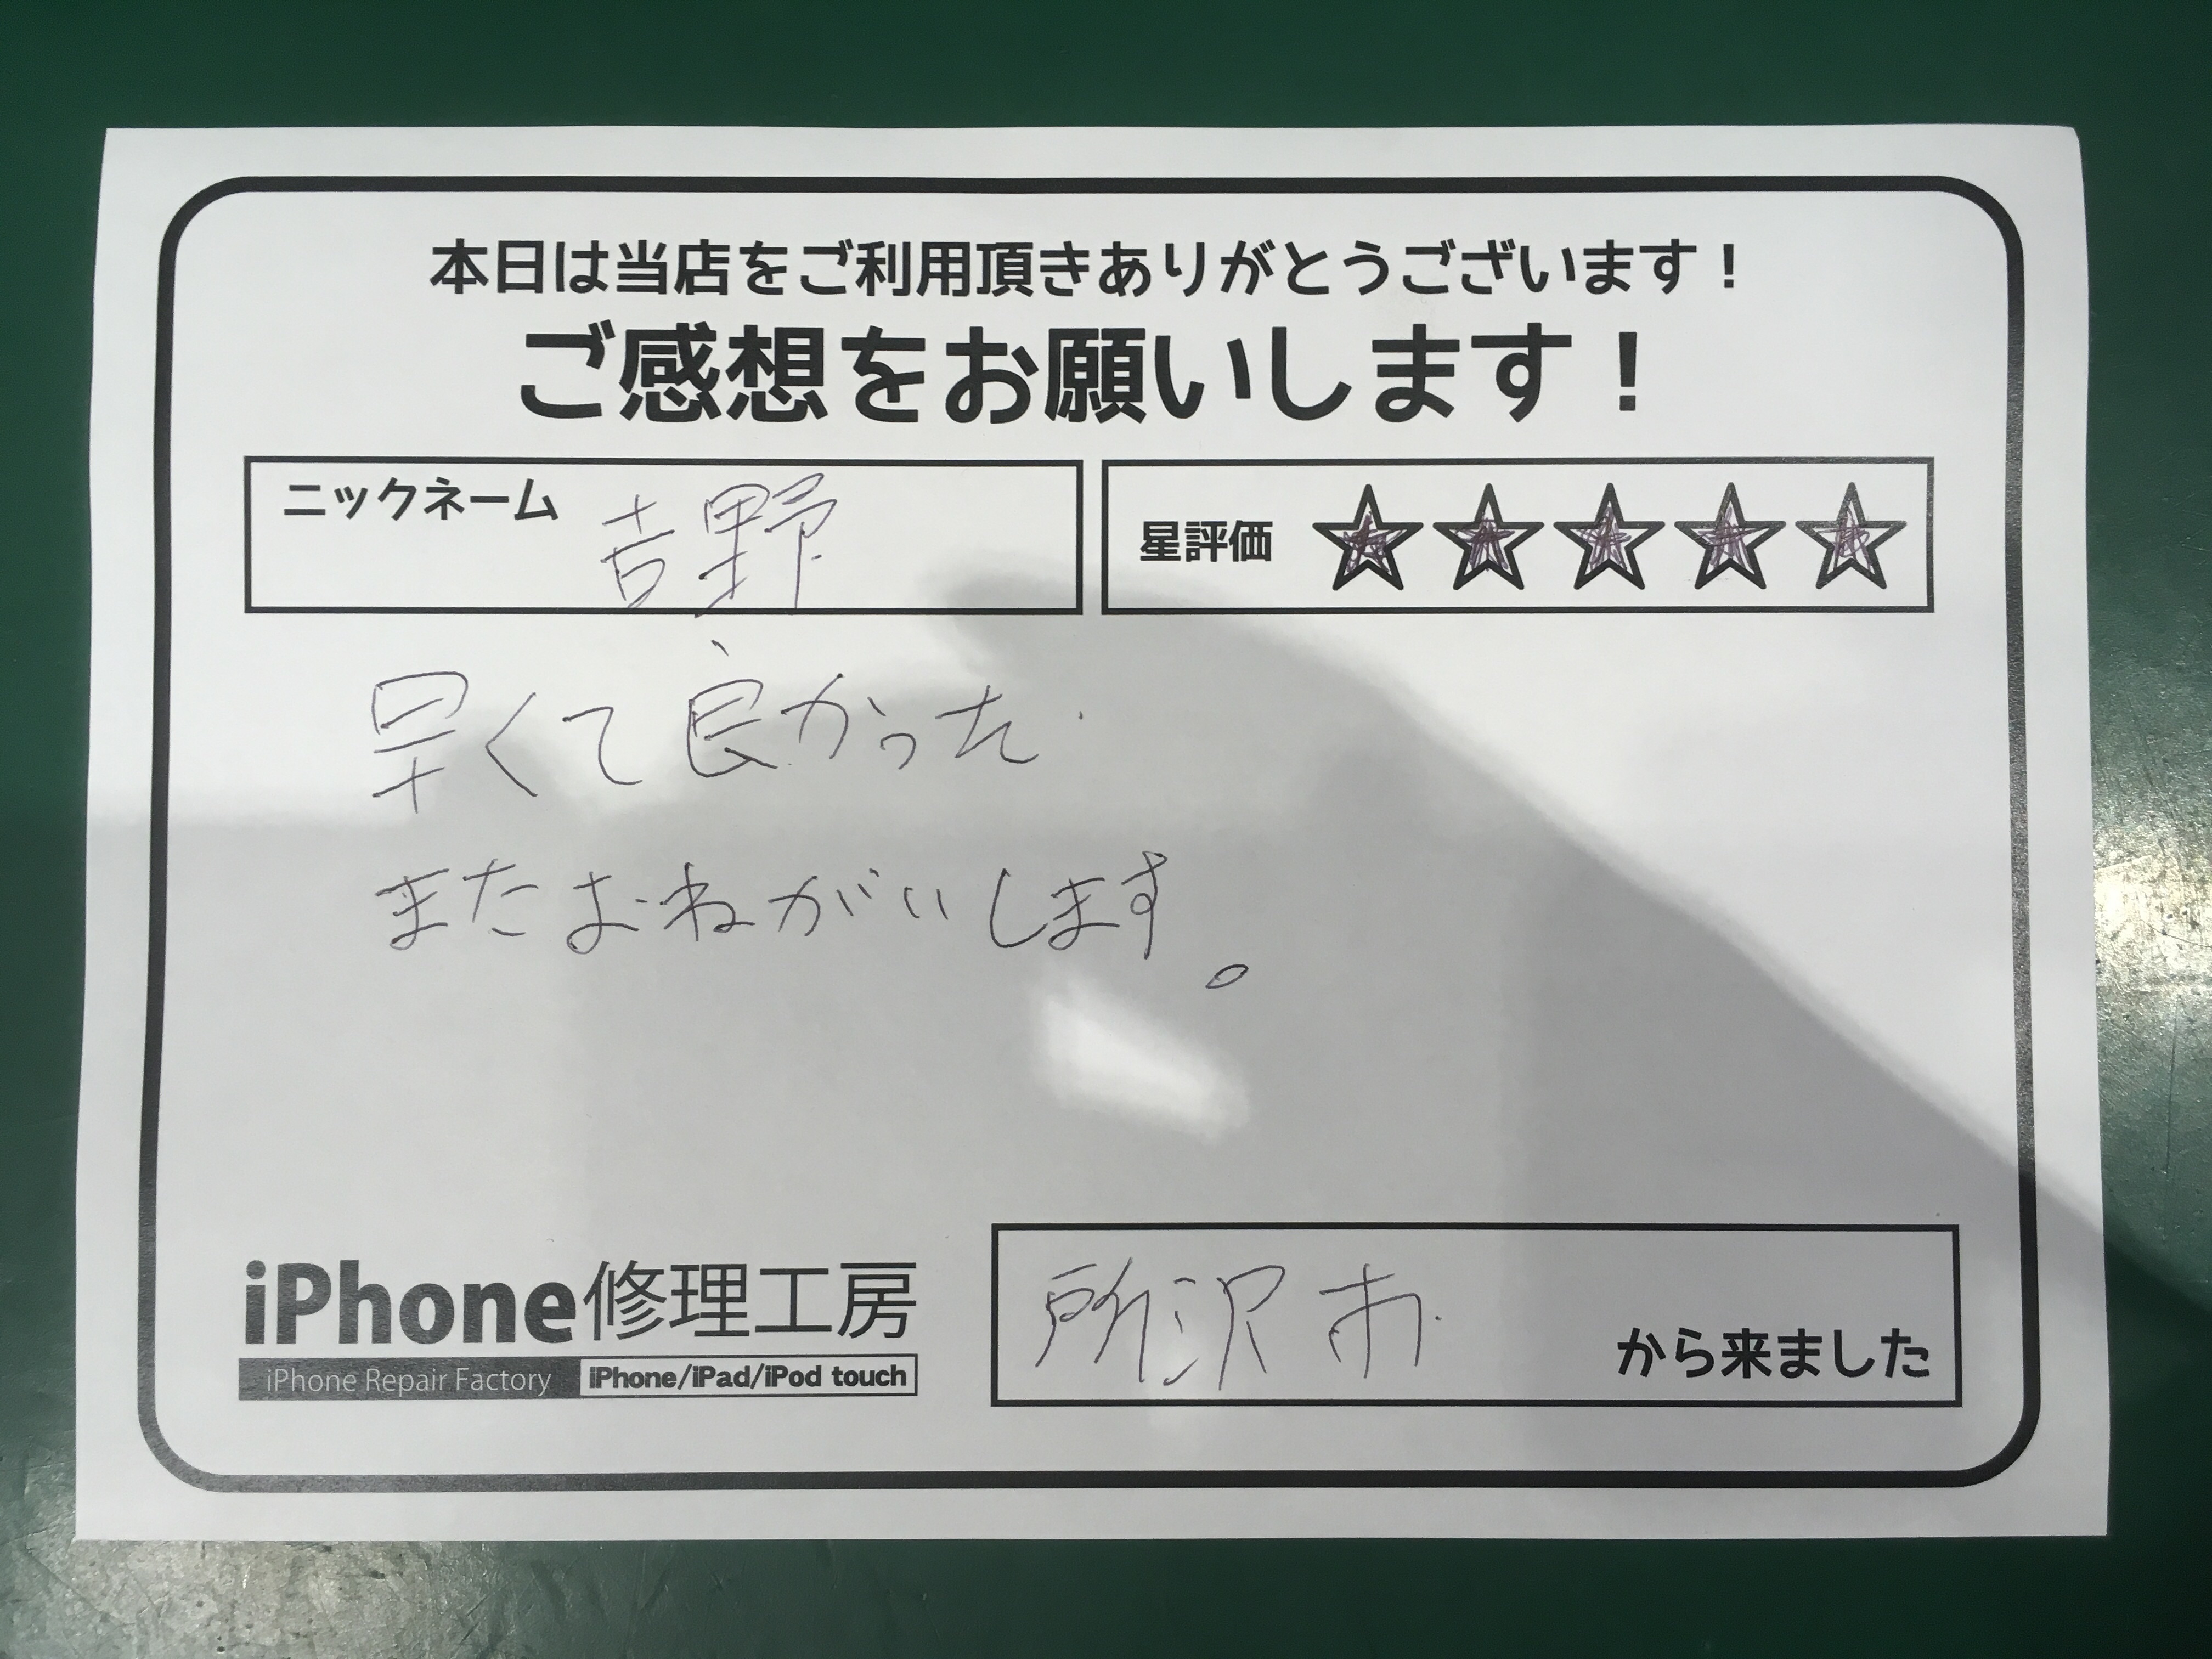 本日は当店をご利用頂きありがとうございます！
ご感想をお願いします！
ニックネーム 吉野
星評価 ☆☆☆☆☆
早くて良かった.
またおねがいします。
iPhone修理工房
iPhone Repair Factory iPhone/iPad/iPod touch
所沢市 から来ました